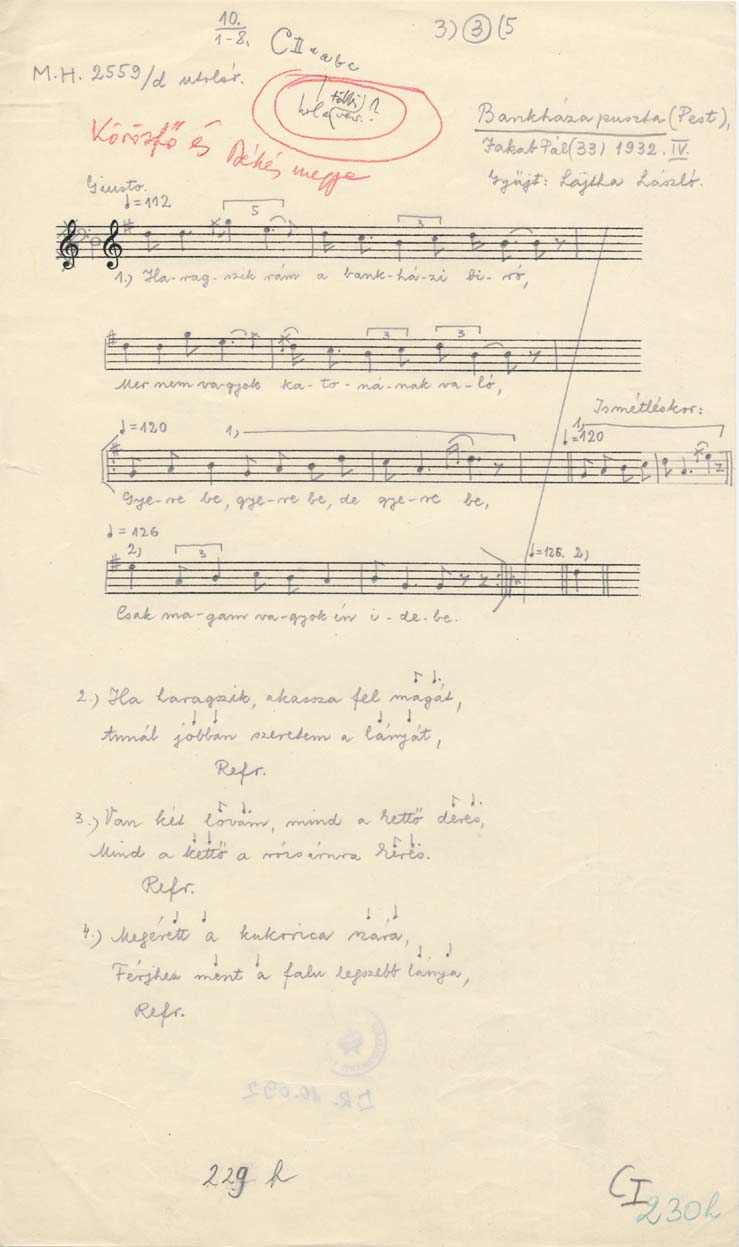 10.
1-8.
C II a a b c
3) 3 (5
M.H. 2559/d utolsó.
Bankháza puszta (Pest),
Jakab Pál (33) 1932. IV.
Gyűjt: Lajtha László.
Körösfő és Békés megye
Giusto.
♩=112
5
3
1.) Ha-rag-szik rám a bank-há-zi bi-ró,
3 3
Mer nem va-gyok ka-to-ná-nak va-ló,
Ismétléskor:
♩=120 1.) ♩=120 1.)
Gye-re be, gye-re be, de gye-re be,
♩=126
2) 3 ♩=126. 2)
Csak ma-gam va-gyok én i-de-be.
2.) Ha haragszik, akassza fel magát,
Annál jobban szeretem a lányát,
Refr.
3.) Van két lovam, mind a kettő deres,
Mind a kettő a rózsámra keres.
Refr.
4.) Megérett a kukorica szára,
Férjhez ment a falu legszebb lánya,
Refr.
DR. 10.092
229 h
C I
230h